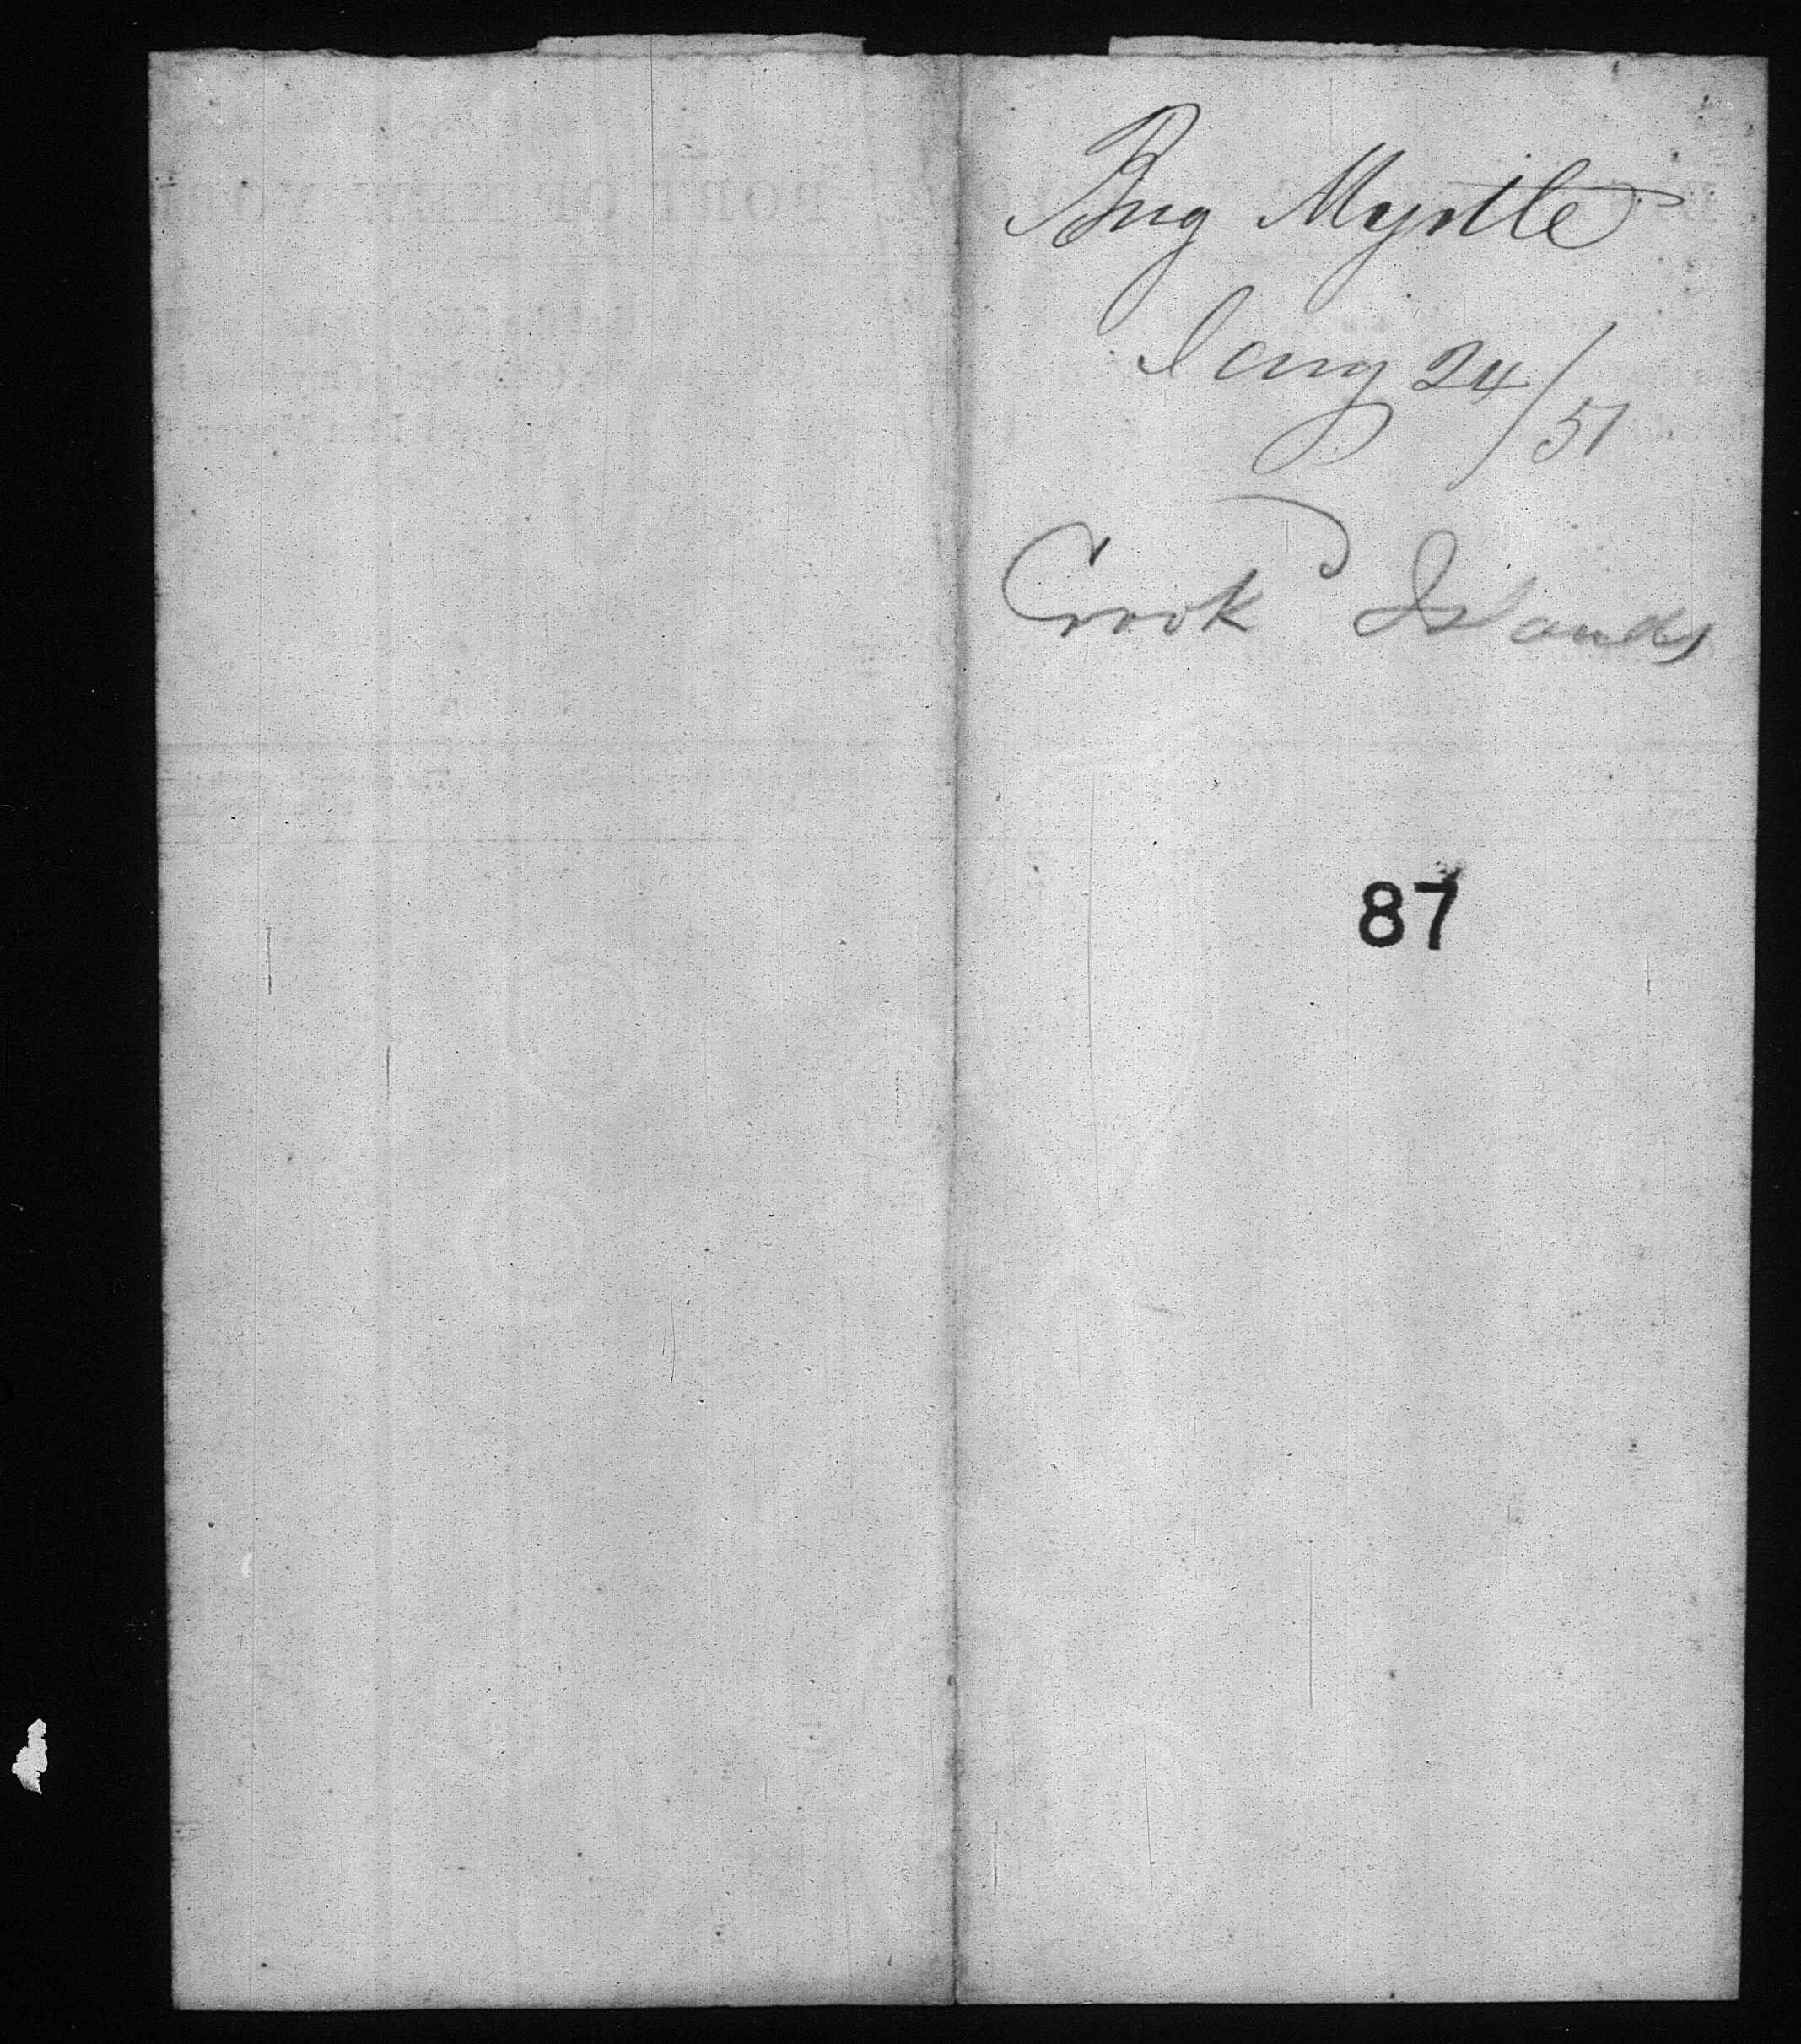 Brig Myrtle
Jany 24/51
Crook Islands
87